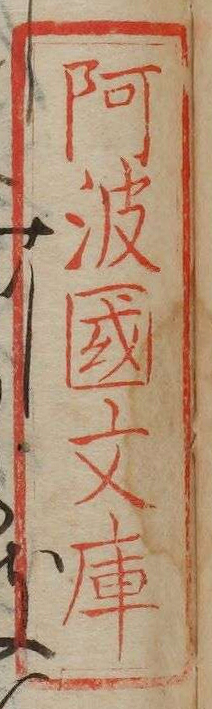 阿波國文庫